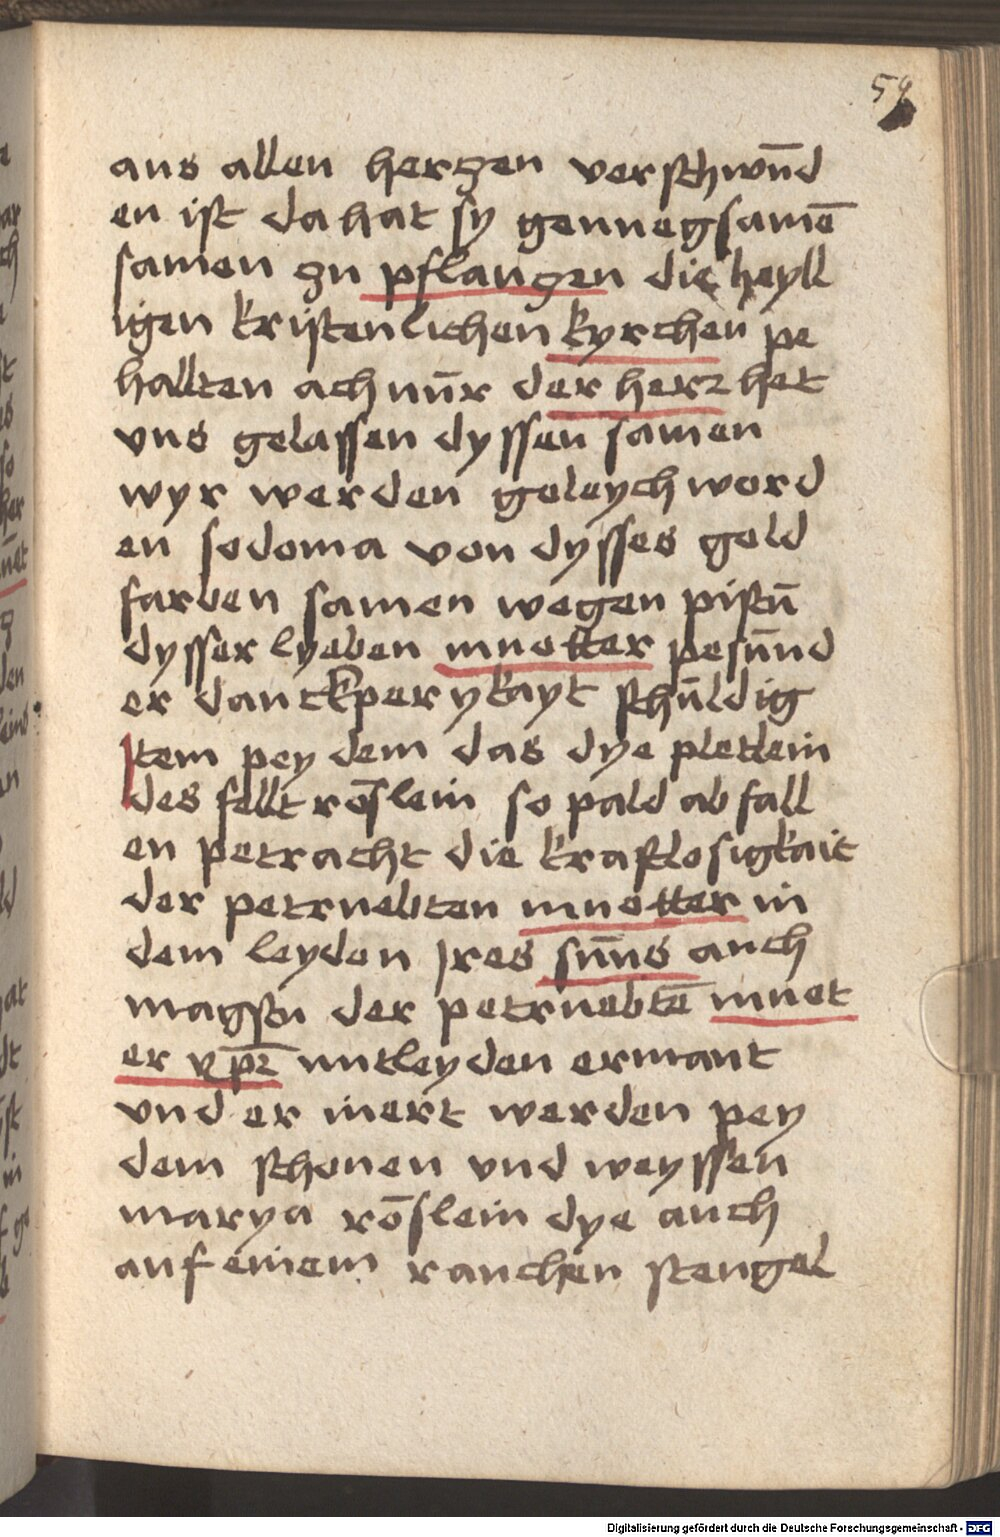 59
aus allen herczen verschwūd
en ist da hat sy genuegsamē
samen zu pflanczen die heyll
igen kristenlichen kyrchen pe
hallten ach nūr der herz het
vns gelassen dyssen samen
wyr werden geleych word
en sodoma von dysses gold
farben samen wegen pistū
dysser lyeben muetter pesūnd
er danckperykayt schūldig
Item pey dem das dye pletlein
des fellt rōslein so pald ab fall
en petracht die kraftlosigkait
der petruebten muetter in
dem leyden Jres sūns auch
magstu der petruebtē muet
er xpī mitleyden ermant
vnd er inert werden pey
dem schonen vnd weyssen
marya rōslein dye auch
auf einem rauchen stengel
Digitalisierung gefördert durch die Deutsche Forschungsgemeinschaft - DFG